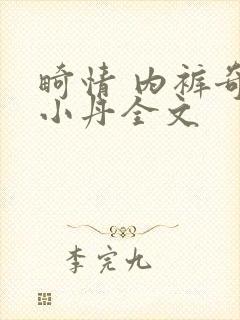 畸情 内裤奇
小丹全文
李完九